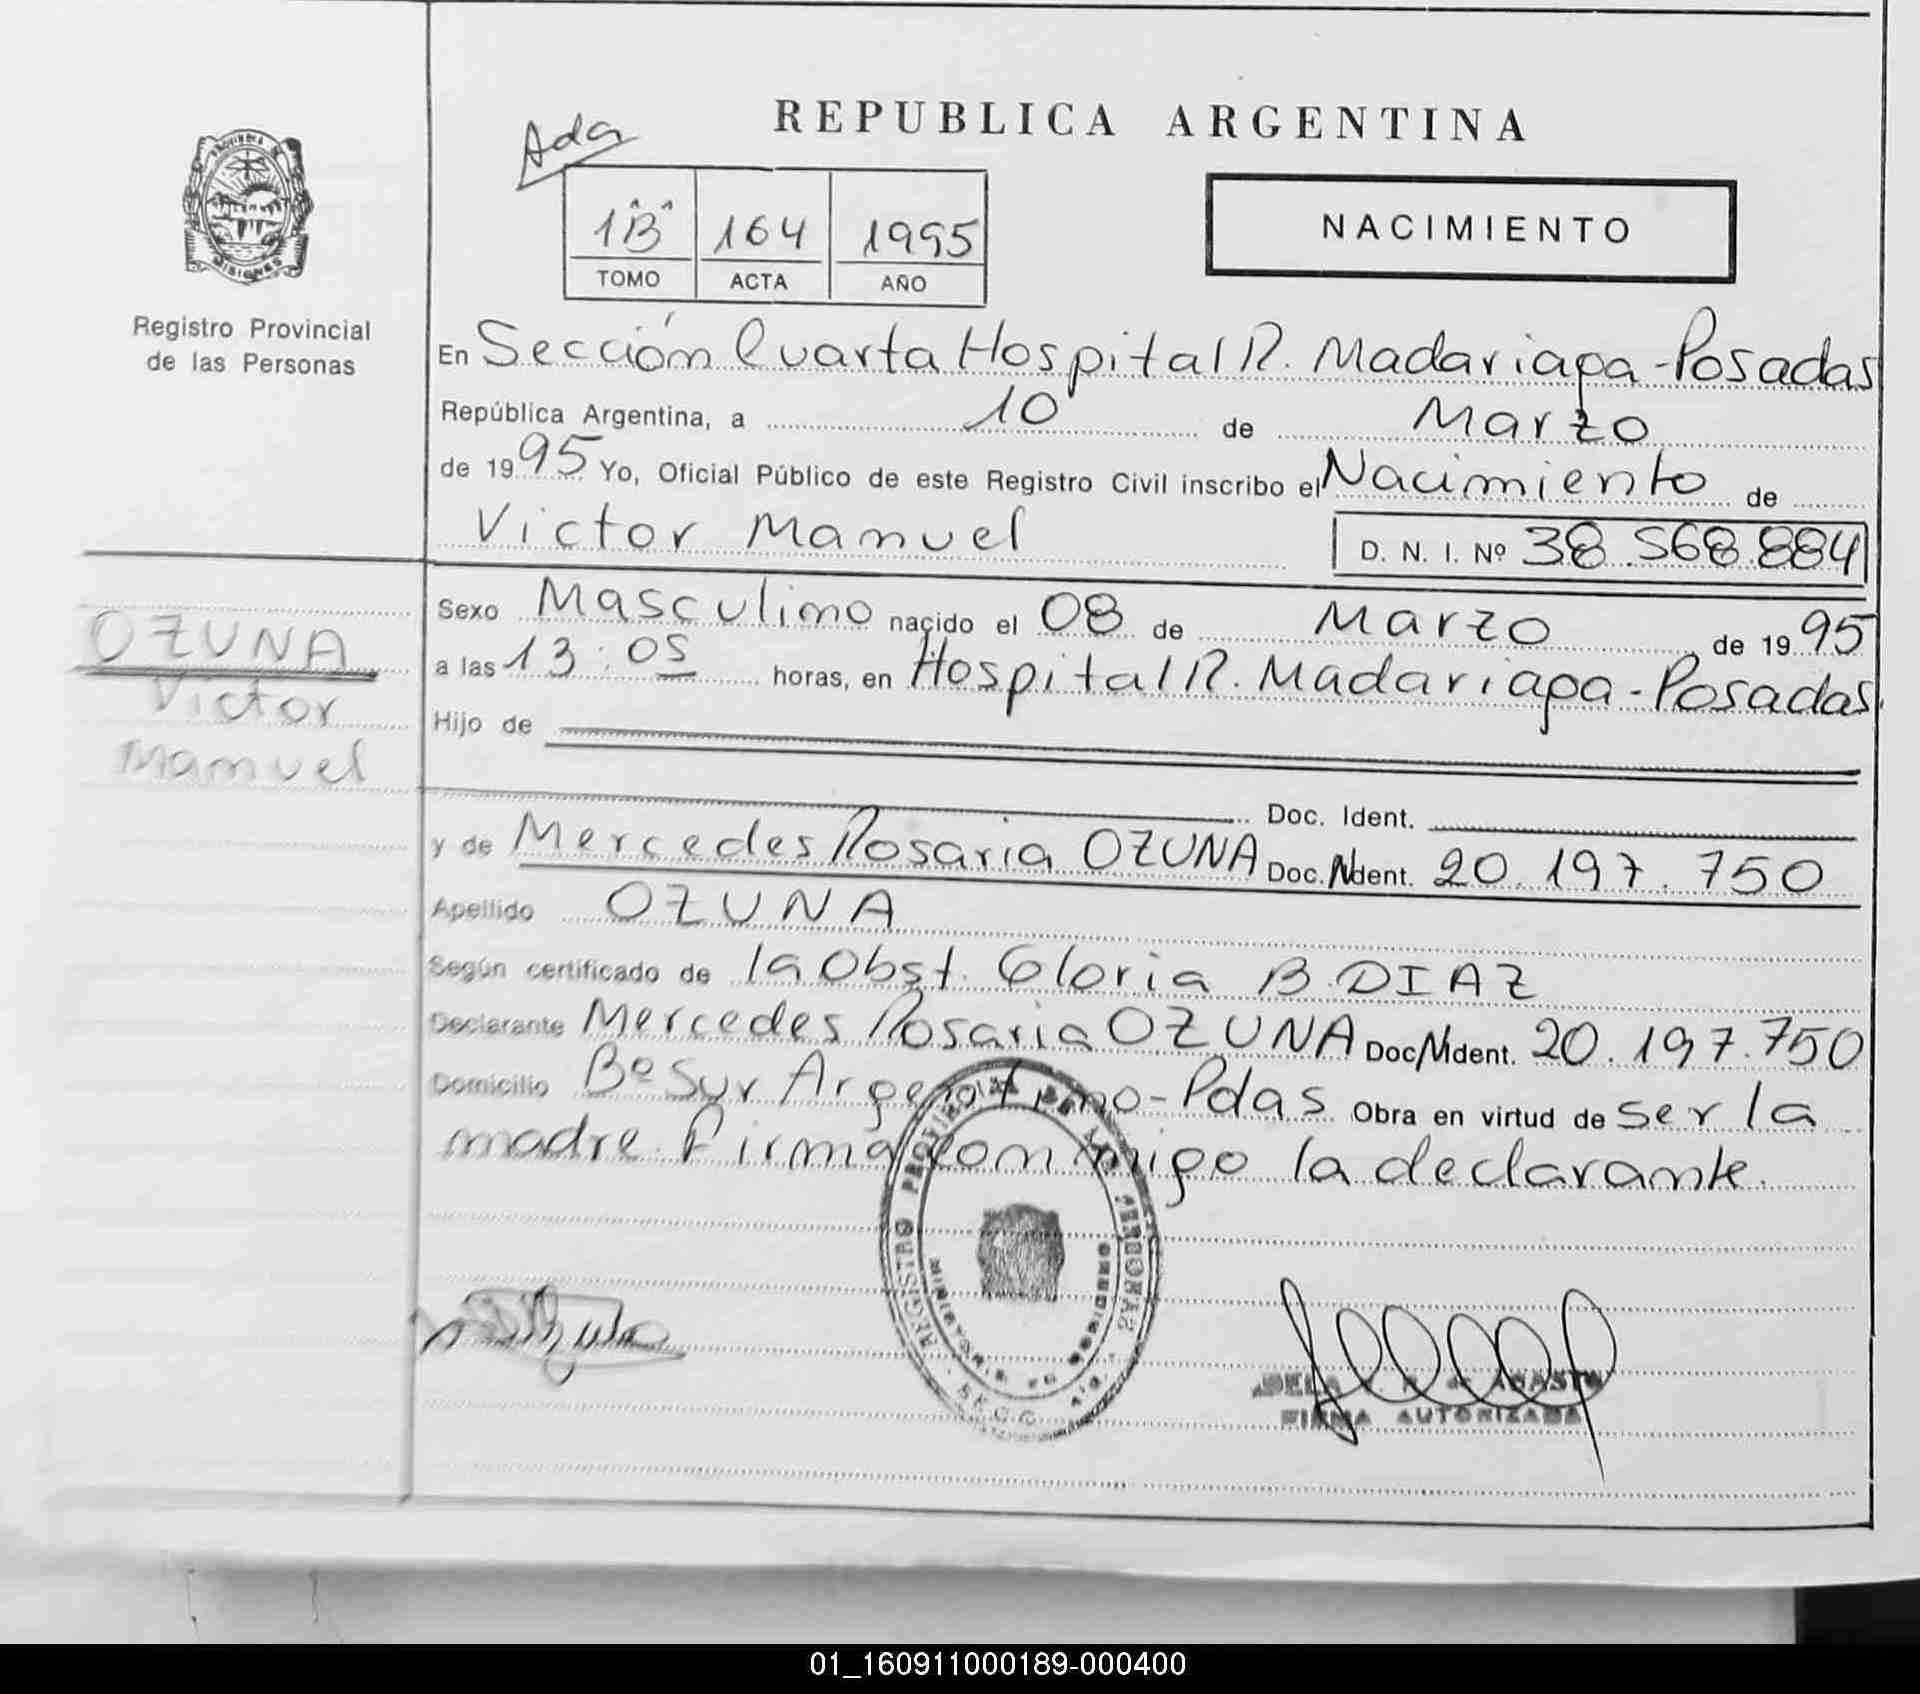 REPUBLICA ARGENTINA
Ada
1 "B" 164 1995
TOMO ACTA AÑO
NACIMIENTO
PROVINCIA DE MISIONES
Registro Provincial
de las Personas
En Sección Cuarta Hospital R. Madariaga - Posadas
República Argentina, a 10 de Marzo
de 1995 Yo, Oficial Público de este Registro Civil inscribo el Nacimiento de
Victor Manuel D. N. I. Nº 38.568.884
OZUNA
Victor
Manuel
Sexo Masculino nacido el 08 de Marzo de 1995
a las 13:05 horas, en Hospital R. Madariaga - Posadas.
Hijo de
Doc. Ident.
y de Mercedes Rosaria OZUNA Doc. N Ident. 20.197.750
Apellido OZUNA
Según certificado de la Obst. Gloria B. DIAZ
Declarante Mercedes Rosaria OZUNA Doc N Ident. 20.197.750
Domicilio Bº Sur Argentino - Pdas Obra en virtud de ser la
madre. Firma conmigo la declarante.
REGISTRO PROVINCIAL DE LAS PERSONAS
SECC.
FIRMA AUTORIZADA
01_160911000189-000400